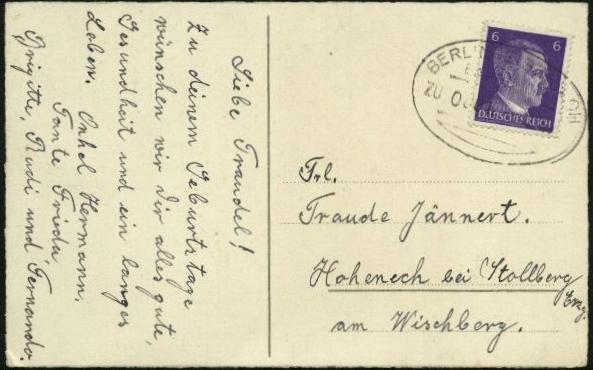 Liebe Traudel!
Zu deinem Geburtstage
wünschen wir dir alles gute,
Gesundheit und ein langes
Leben. Onkel Hermann,
Tante Frieda,
Brigitte, Rudi und Fernando.
6 6
DEUTSCHES REICH
BERLIN
ZU
Frl.
Traude Jännert.
Hoheneck bei Stollberg
Erzg.
am Wischberg.